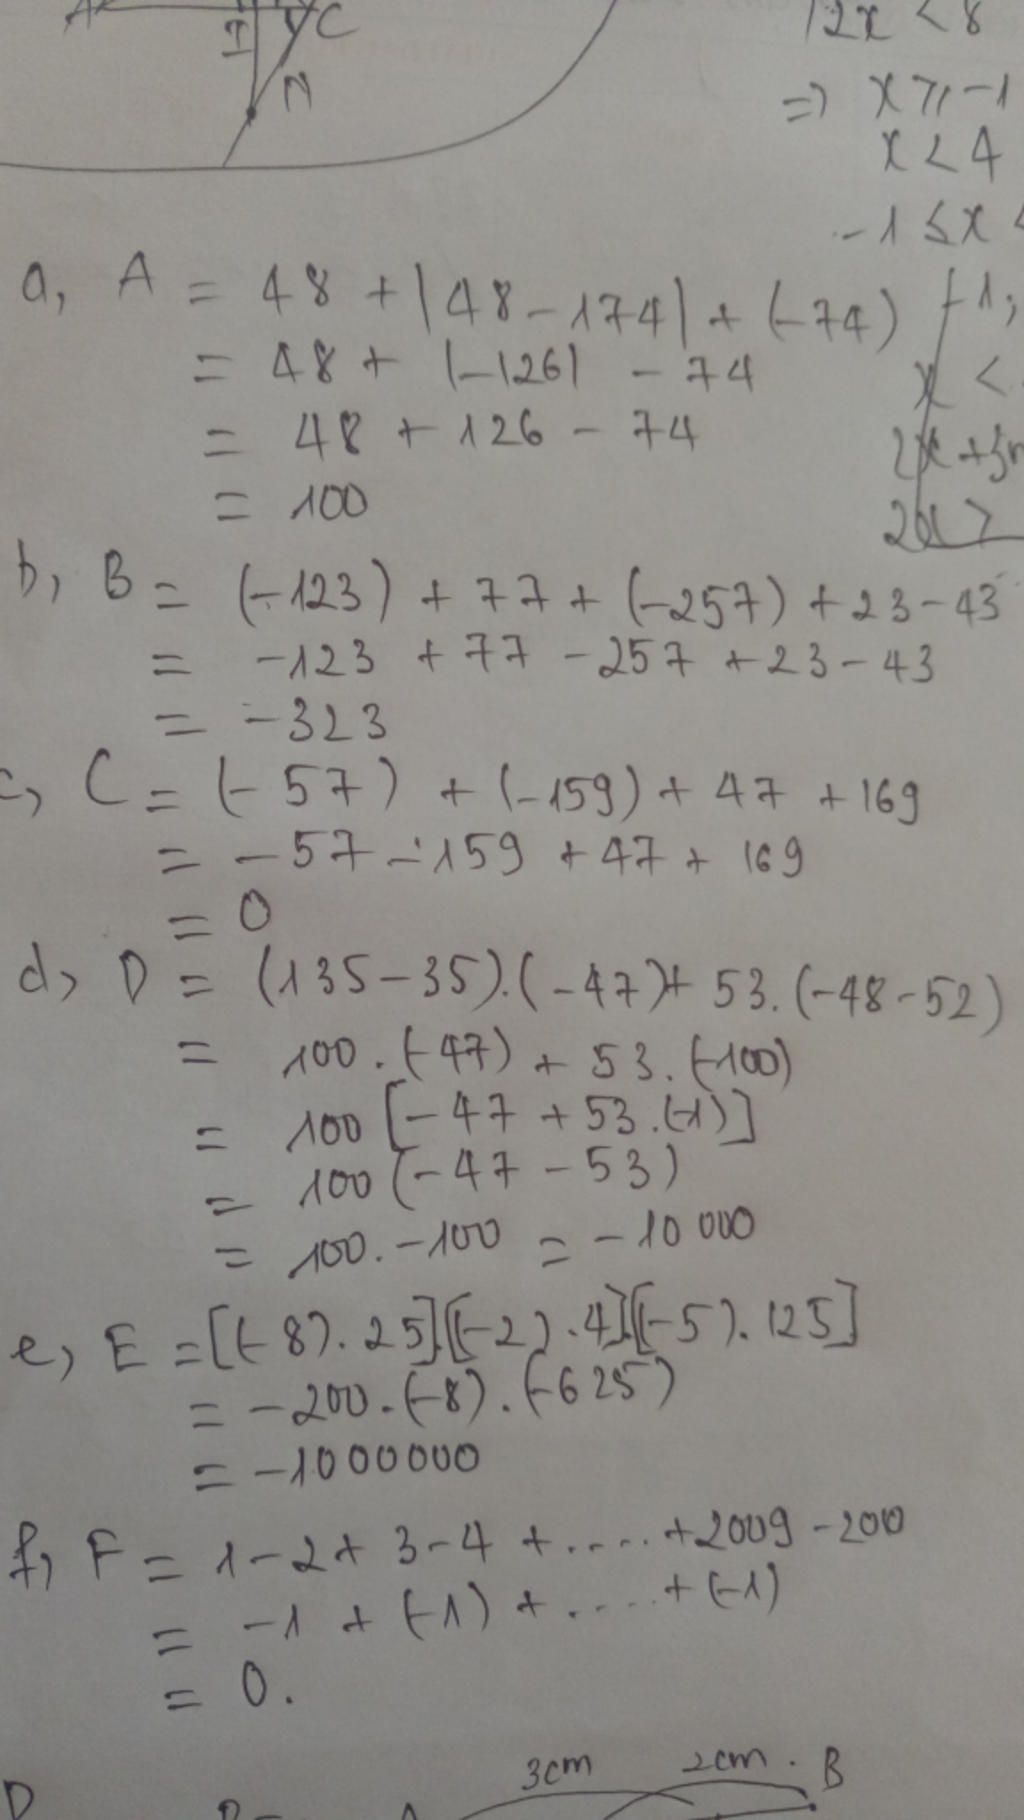 A I C
N
12x < 8
=> x ≥ -1
x < 4
-1 ≤ x <
-1;
x <
2x +
2x >
a, A = 48 + |48 - 174| + (-74)
= 48 + |-126| - 74
= 48 + 126 - 74
= 100
b, B = (-123) + 77 + (-257) + 23 - 43
= -123 + 77 - 257 + 23 - 43
= -323
c, C = (-57) + (-159) + 47 + 169
= -57 - 159 + 47 + 169
= 0
d, D = (135 - 35).(-47) + 53.(-48 - 52)
= 100.(-47) + 53.(-100)
= 100[-47 + 53.(-1)]
= 100(-47 - 53)
= 100.-100 = -10 000
e, E = [(-8).25].[(-2).4].[(-5).125]
= -200.(-8).(-625)
= -1000000
f, F = 1 - 2 + 3 - 4 + ..... + 2009 - 200
= -1 + (-1) + ..... + (-1)
= 0.
3cm 2cm . B
D